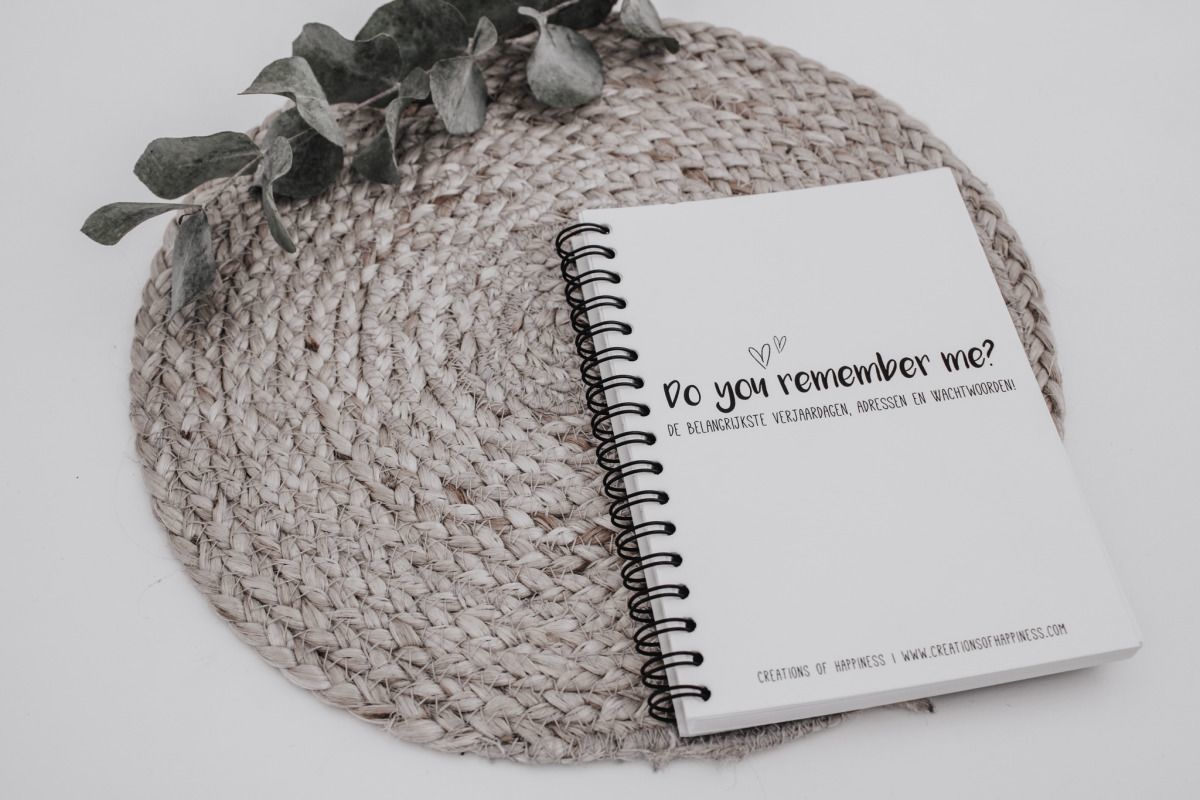 Do you remember me?
DE BELANGRIJKSTE VERJAARDAGEN, ADRESSEN EN WACHTWOORDEN!
CREATIONS OF HAPPINESS | WWW.CREATIONSOFHAPPINESS.COM